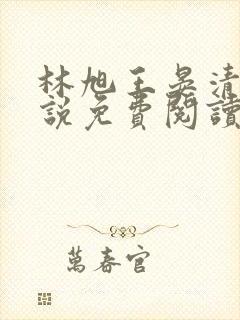 林旭王晏清
說免費閱讀
萬春官